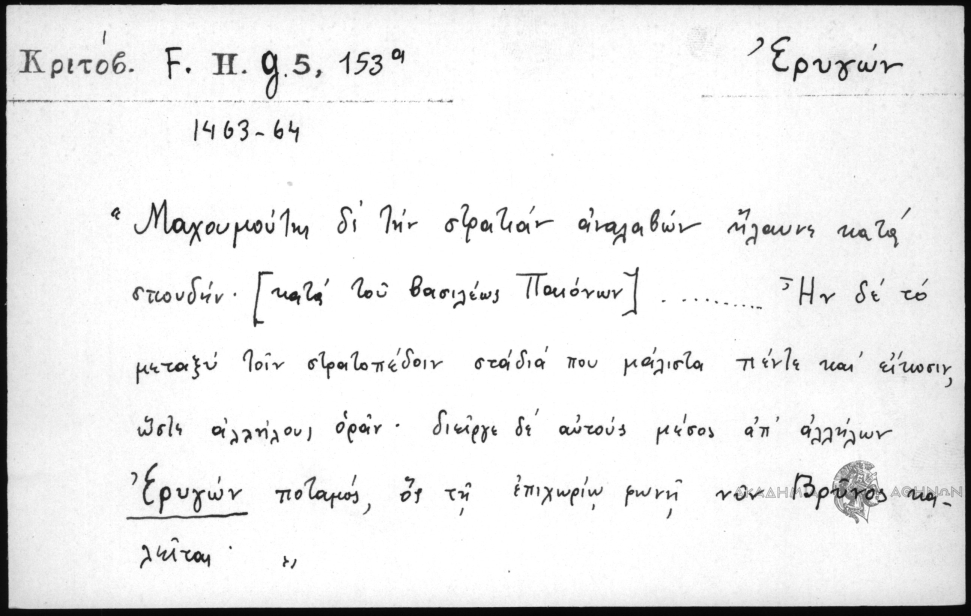 Κριτόβ. F. H. g. 5, 153ᵃ
Ἐρυγών
1463-64
"Μαχουμούτης δέ τήν στρατιάν ἀναλαβών ἤλαυνε κατά
σπουδήν. [κατά τοῦ βασιλέως Παιόνων] .......... Ἦν δέ τό
μεταξύ τοῖν στρατοπέδοιν στάδιά που μάλιστα πέντε καί εἴκοσιν,
ὥστε ἀλλήλους ὁρᾶν. διεῖργε δέ αὐτούς μέσος ἀπ' ἀλλήλων
Ἐρυγών ποταμός, ὅς τῇ ἐπιχωρίῳ φωνῇ νῦν Βρῦνος κα-
λεῖται. "
ΑΚΑΔΗΜΙΑ ΑΘΗΝΩΝ